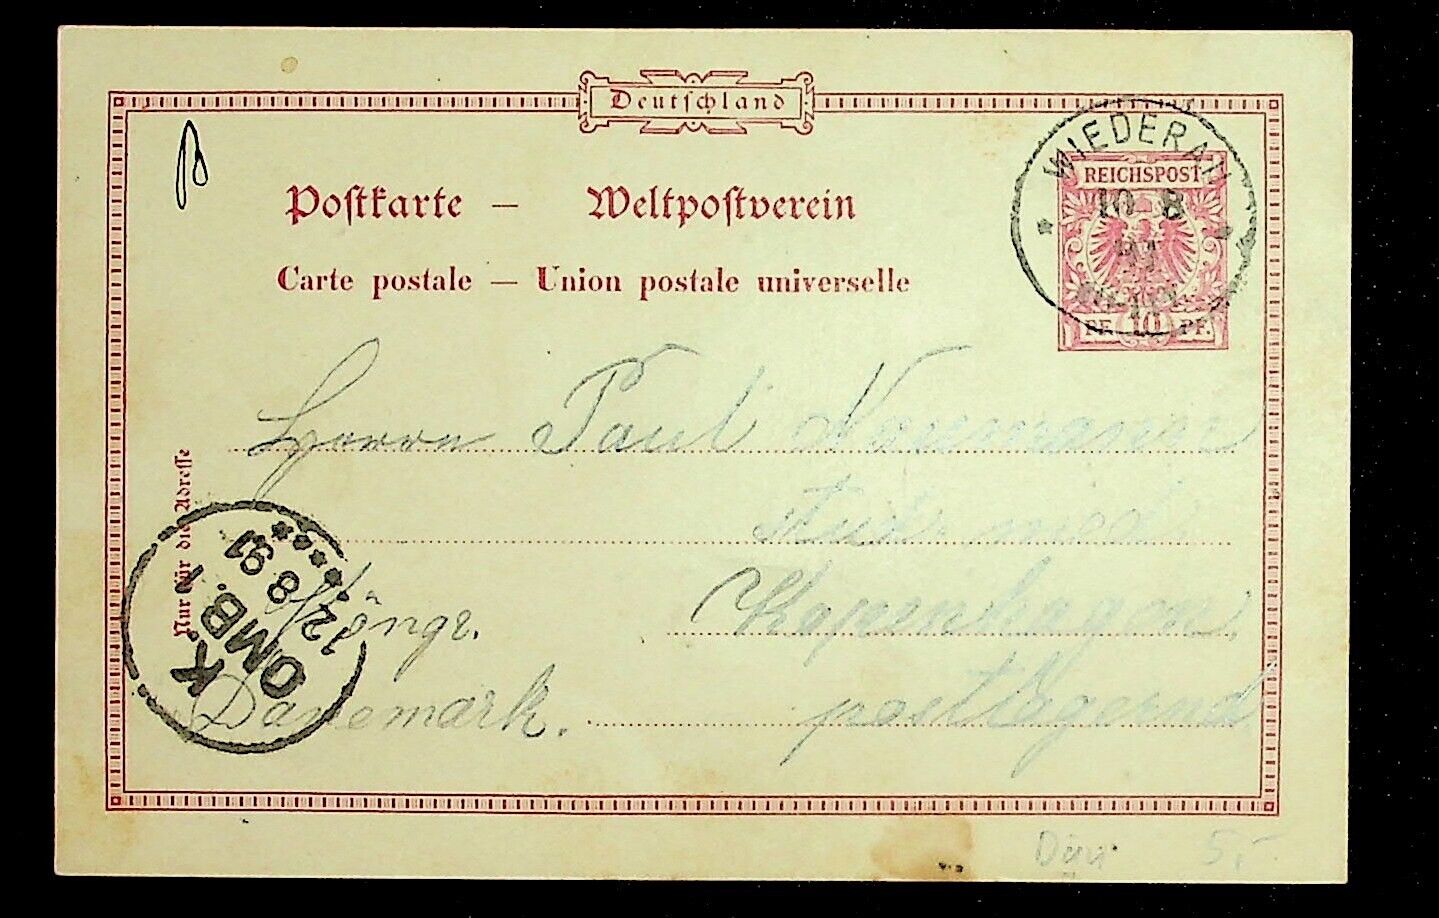 Deutschland
Postkarte — Weltpostverein
Carte postale — Union postale universelle
WIEDERAU
10 8
REICHSPOST
PF. 10 PF.
Herrn Paul Naumann
stud. med.
Kopenhagen
Königr.
Dänemark.
postlagernd
Nur für die Adresse
K.
OMB. 1
12 8 91
Dän 5,-